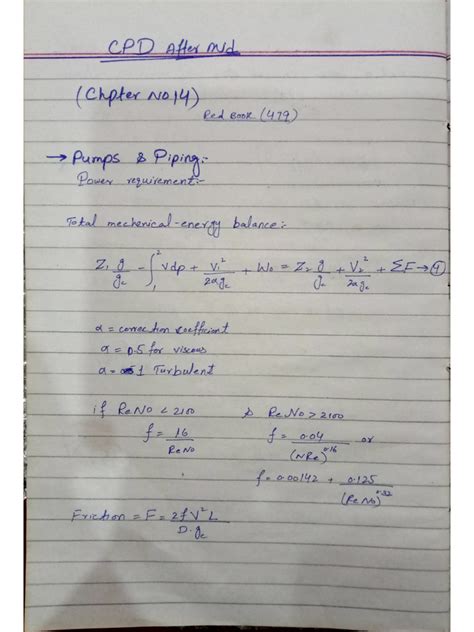 CPD After Mid
(Chpter No 14)
Red Book (479)
→ Pumps & Piping:-
Power requirement:-
Total mechenical-energy balance:-
Z₁ g/gc - ∫₁² vdp + V₁²/2αgc + W₀ = Z₂ g/gc + V₂²/2αgc + ΣF → (1)
α = correction coefficient
α = 0.5 for viscous
α = 1 Turbulent
if ReNO < 2100
ReNO > 2100
f = 16/ReNO
f = 0.04/(NRe)^0.16 or
f = 0.00142 + 0.125/(ReNO)^0.32
Friction = F = 2fV²L/D.gc